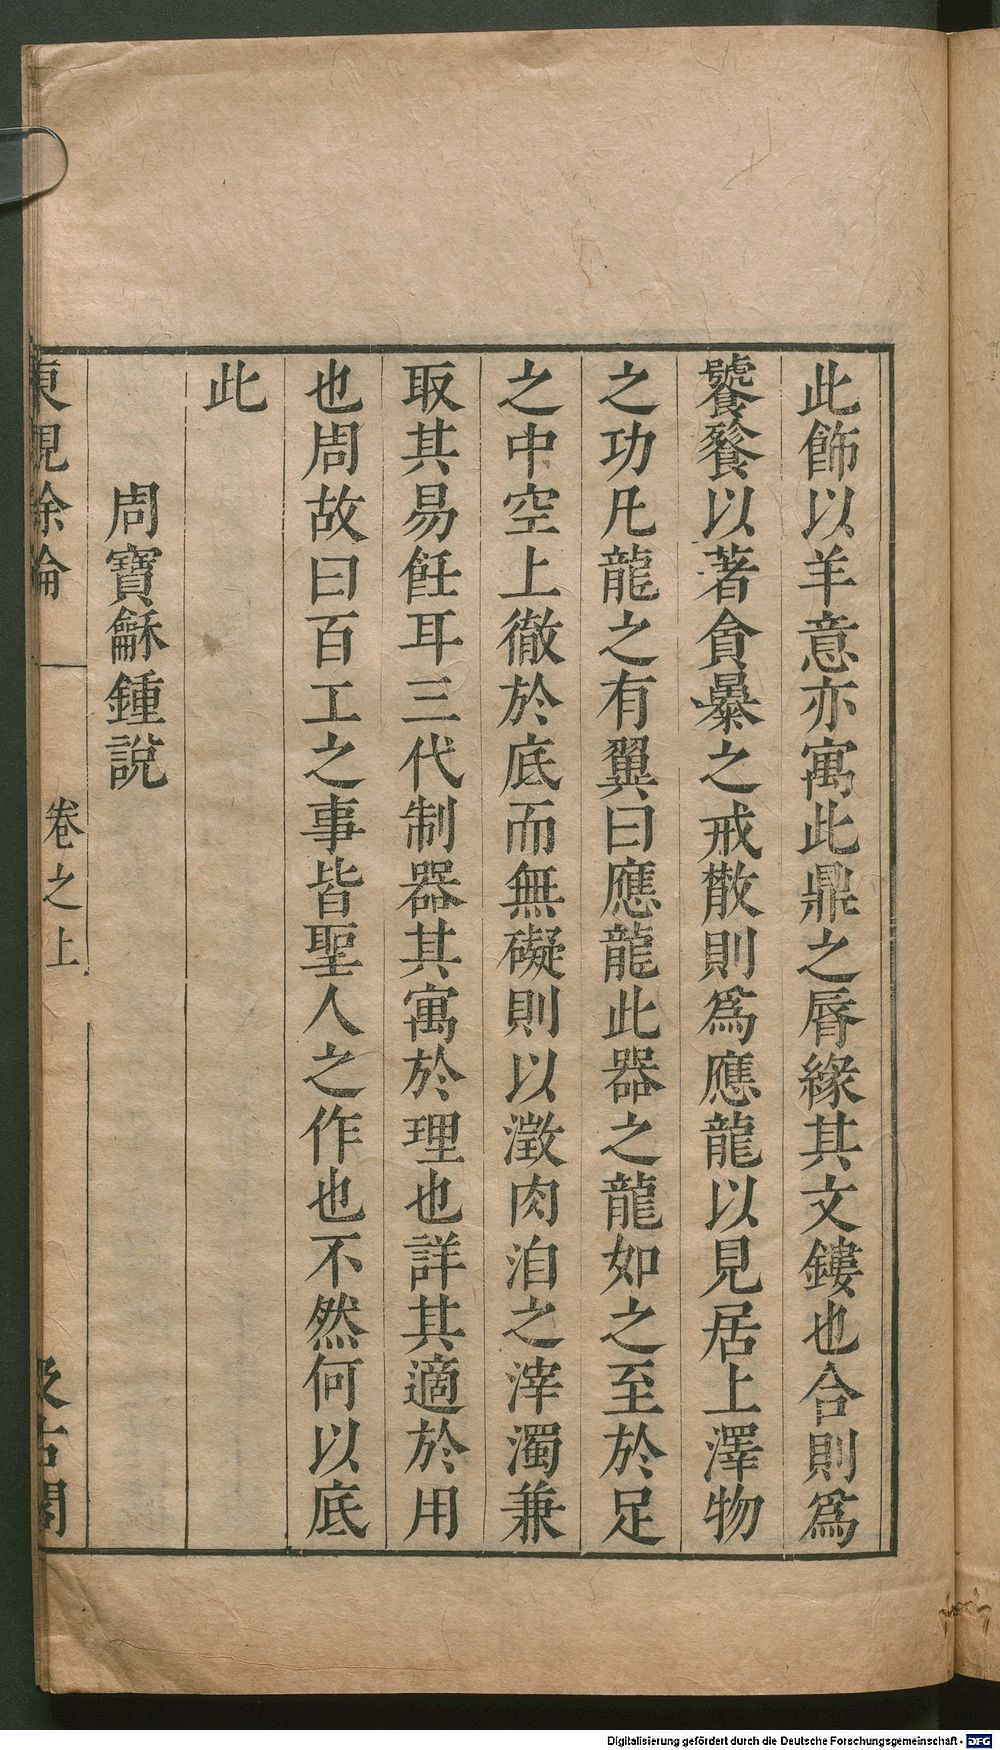 此飾以羊意亦寓此鼎之脣緣其文鏤也合則爲
饕餮以著貪暴之戒散則爲應龍以見居上澤物
之功凡龍之有翼曰應龍此器之龍如之至於足
之中空上徹於底而無礙則以澂肉洎之滓濁兼
取其易飪耳三代制器其寓於理也詳其適於用
也周故曰百工之事皆聖人之作也不然何以底
此
周寶龢鍾說
東觀餘論
卷之上
汲古閣
Digitalisierung gefördert durch die Deutsche Forschungsgemeinschaft - DFG